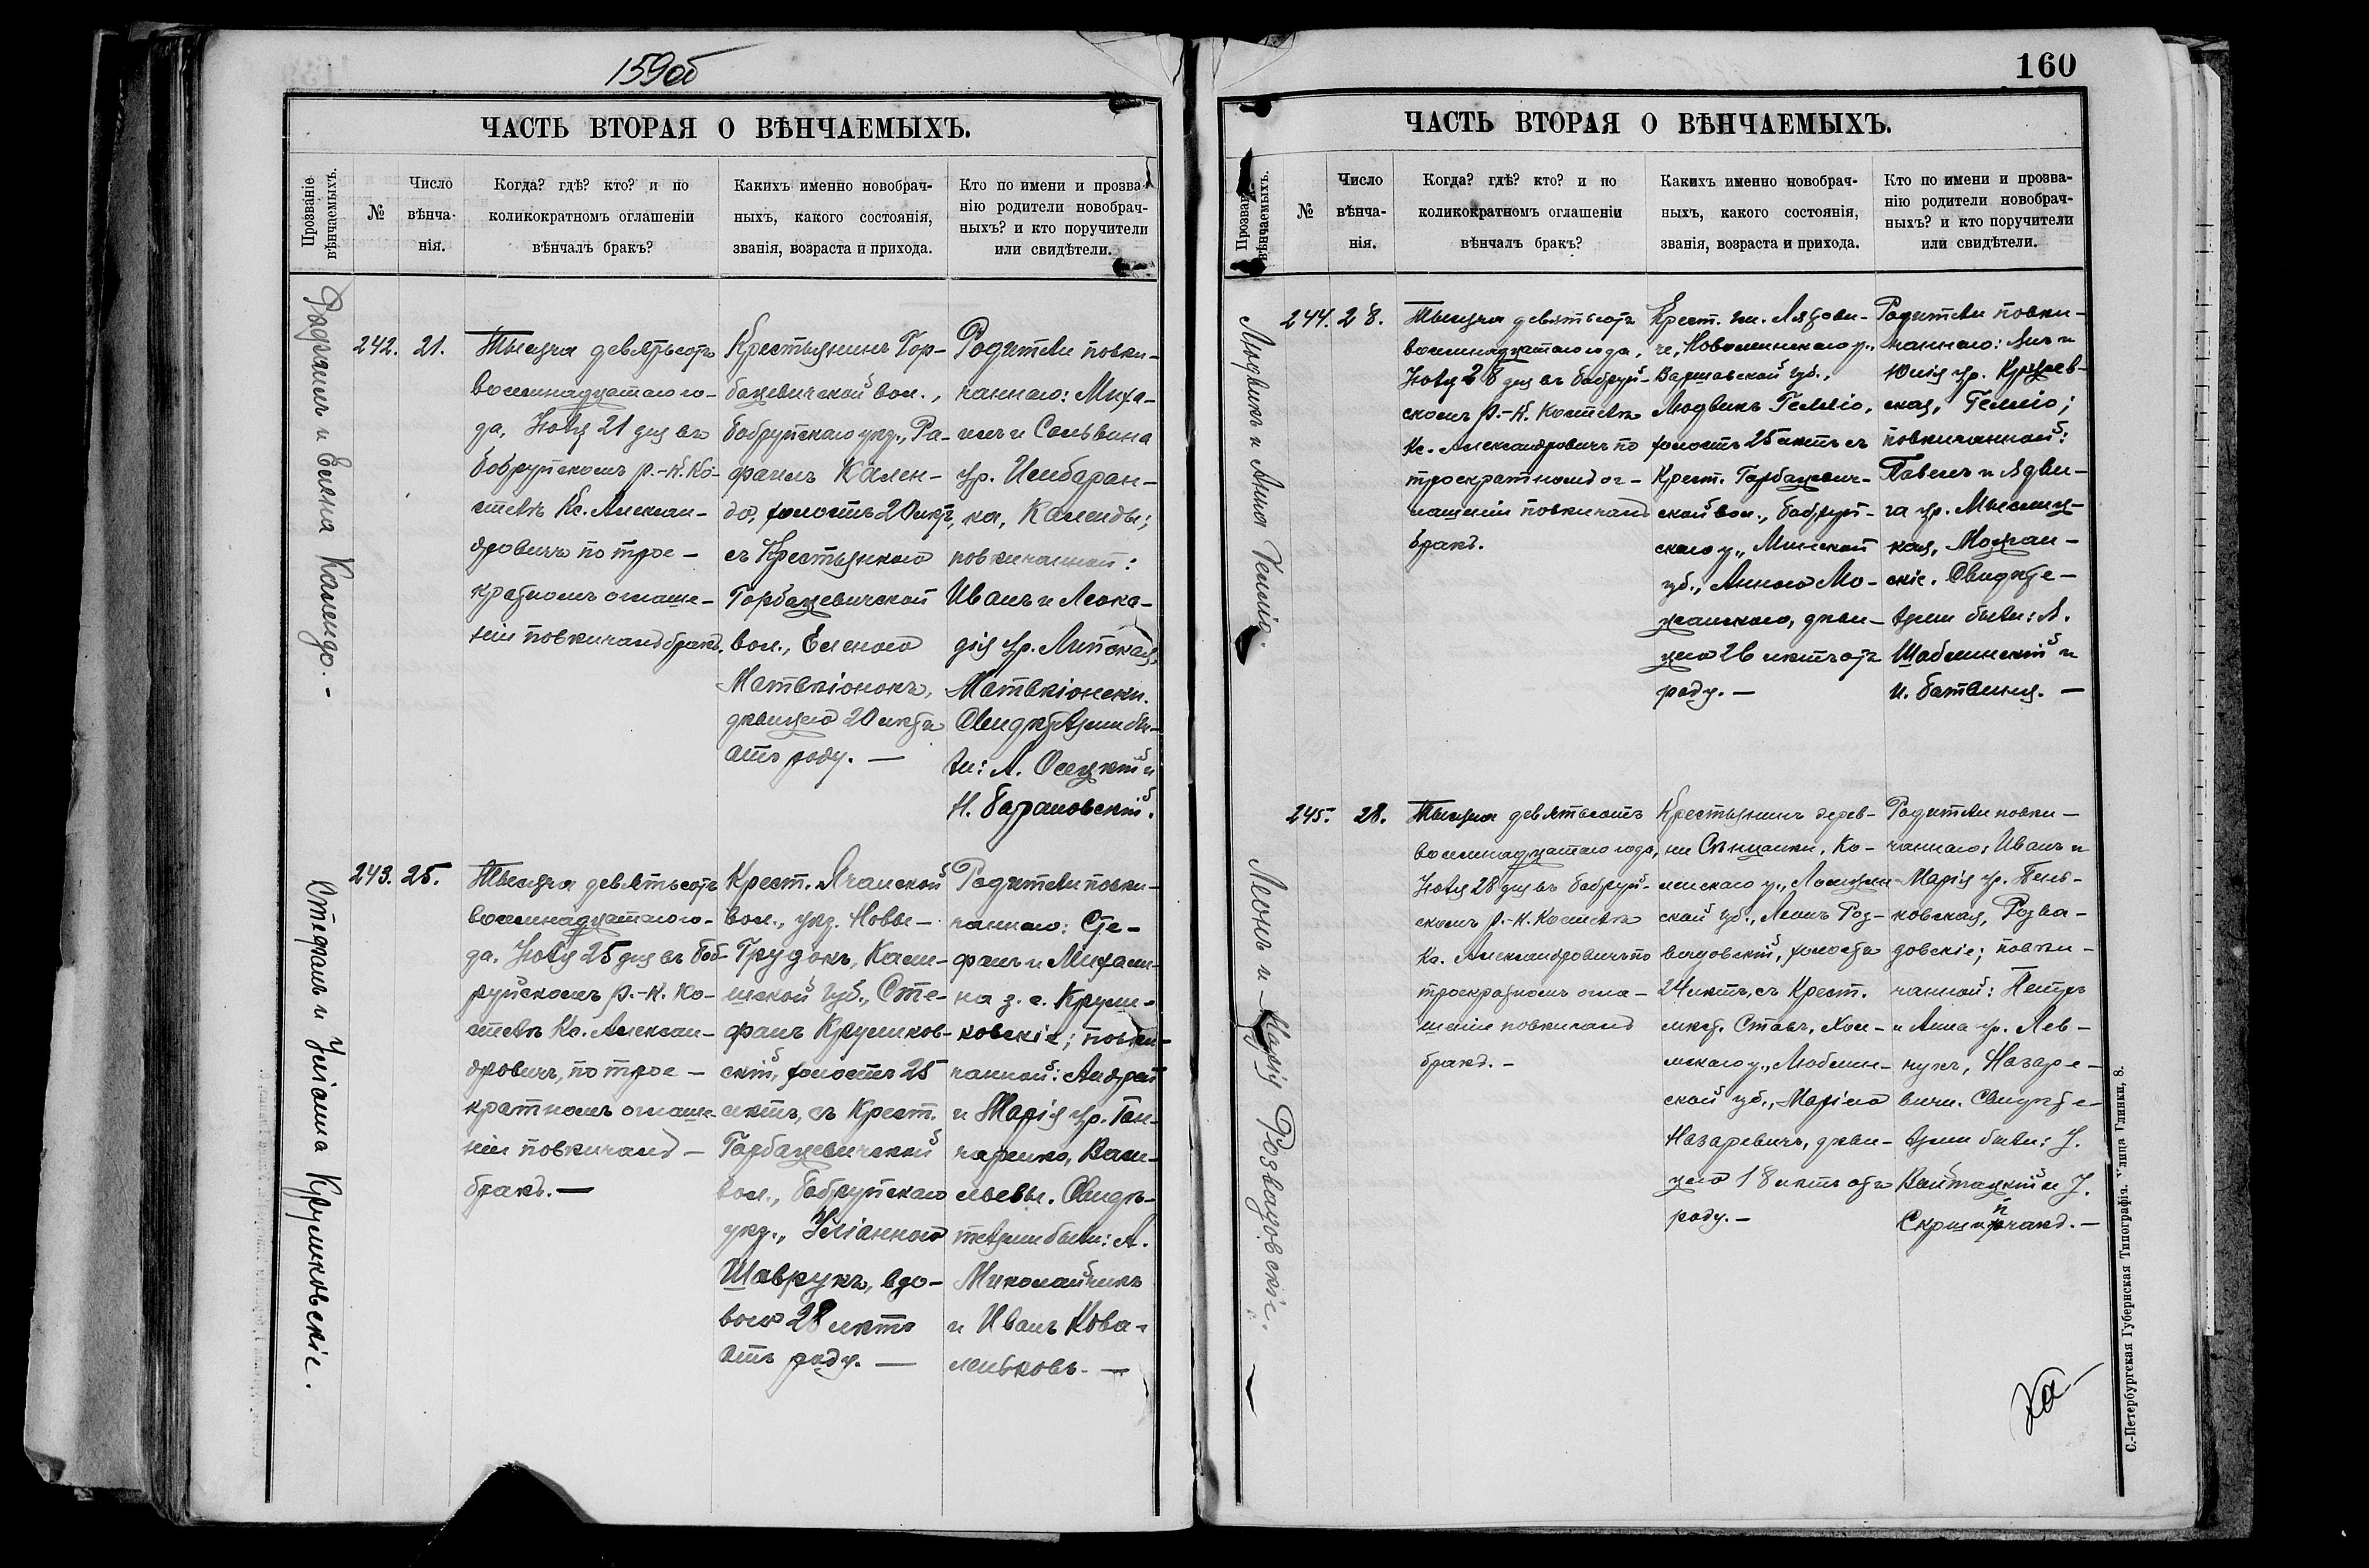 159об
ЧАСТЬ ВТОРАЯ О ВѢНЧАЕМЫХЪ.
Прозваніе
вѣнчаемыхъ.
№
Число
вѣнча-
нія.
Когда? гдѣ? кто? и по
коликократномъ оглашеніи
вѣнчалъ бракъ?
Какихъ именно новобрач-
ныхъ, какого состоянія,
званія, возраста и прихода.
Кто по имени и прозва-
нію родители новобрач-
ныхъ? и кто поручители
или свидѣтели.
Рафаилъ и Елена Календо. -
242.
21.
Тысяча девятьсотъ
восемнадцатаго го-
да, Іюля 21 дня въ
Бобруйскомъ р.-к. Ко-
стелѣ Кс. Алексан-
дровичъ по трое-
кратномъ оглаше-
ніи повѣнчалъ бракъ.
Крестьянинъ Гор-
бацевичской вол.,
Бобруйскаго уѣз., Ра-
фаилъ Кален-
до, холостъ 20 лѣтъ,
съ Крестьянкою
Горбацевичской
вол., Еленою
Матвѣіонокъ,
дѣвицею 20 лѣтъ
отъ роду. —
Родители повѣн-
чаннаго: Миха-
илъ и Сальвина
ур. Цимбаран-
ка, Календы;
повѣнчанной:
Иванъ и Леока-
дія ур. Липская,
Матвѣіонеки.
Свидѣтелями бы-
ли: А. Осецкій и
Н. Барановскій.
Стефанъ и Уліанна Крумковскіе.
243.
25.
Тысяча девятьсотъ
восемнадцатаго го-
да, Іюля 25 дня въ Боб-
руйскомъ р.-к. Ко-
стелѣ Кс. Алексан-
дровичъ, по трое-
кратномъ оглаше-
ніи повѣнчалъ —
бракъ. —
Крест. Ячанской
вол., уѣз. Новы-
Грудокъ,
губ., Сте-
фанъ Крумков-
скій, холостъ 25
лѣтъ, съ Крест.
Горбацевичской
вол., Бобруйскаго
уѣз., Уліанною
Шаврукъ, вдо-
вою 28 лѣтъ
отъ роду. —
Родители повѣн-
чаннаго: Сте-
фанъ и Михали-
на з. с. Крум-
ковскіе; повѣн-
чанной: Андрей
и Марія ур. Гон-
чаренко, Васи-
льевы. Свидѣ-
телями были: А.
Миколайчикъ
и Иванъ Кова-
леньковъ. —
160
ЧАСТЬ ВТОРАЯ О ВѢНЧАЕМЫХЪ.
Прозваніе
вѣнчаемыхъ.
№
Число
вѣнча-
нія.
Когда? гдѣ? кто? и по
коликократномъ оглашеніи
вѣнчалъ бракъ?
Какихъ именно новобрач-
ныхъ, какого состоянія,
званія, возраста и прихода.
Кто по имени и прозва-
нію родители новобрач-
ныхъ? и кто поручители
или свидѣтели.
Людвикъ и Анна Гемліо.
244.
28.
Тысяча девятьсотъ
восемнадцатаго года,
Іюля 28 дня въ Бобруй-
скомъ р.-к. Костелѣ
Кс. Александровичъ по
троекратномъ ог-
лашеніи повѣнчалъ
бракъ.
Крест. гм. Лядови-
че, Новоминскаго у.,
Варшавской губ.,
Людвикъ Гемліо,
холостъ 25 лѣтъ съ
Крест. Горбацевич-
ской вол., Бобруй-
скаго у., Минской
губ., Анною Мо-
жанскою, дѣви-
цею 26 лѣтъ отъ
роду. —
Родители повѣн-
чаннаго: Янъ и
Юлія ур.
Гемліо;
повѣнчанной:
Павелъ и Ядви-
га ур. Мыслиц-
кая, Можан-
скіе. Свидѣте-
лями были: А.
Шаблинскій и
И. Батвиня. —
Леонъ и Марія Розвадовскіе.
245.
28.
Тысяча девятьсотъ
восемнадцатаго года,
Іюля 28 дня въ Бобруй-
скомъ р.-к. Костелѣ
Кс. Александровичъ по
троекратномъ огла-
шеніи повѣнчалъ
бракъ. -
Крестьянинъ дерев-
ни Ко-
ленскаго у., Ломжин-
ской губ., Леонъ Роз-
вадовскій, холостъ
24 лѣтъ, съ Крест.
мѣст. Ставъ, Хол-
мскаго у., Люблин-
ской губ., Маріею
Назаревичъ, дѣви-
цею 18 лѣтъ отъ
роду. -
Родители повѣн-
чаннаго: Иванъ и
Марія ур. Пень-
ковская, Розва-
довскіе; повѣн-
чанной: Петръ
и Анна ур. Лев-
чукъ, Назаре-
вичи. Свидѣте-
лями были: У.
Войтацкій и У.
С.-Петербургская Губернская Типографія. Улица Глинки, 8.